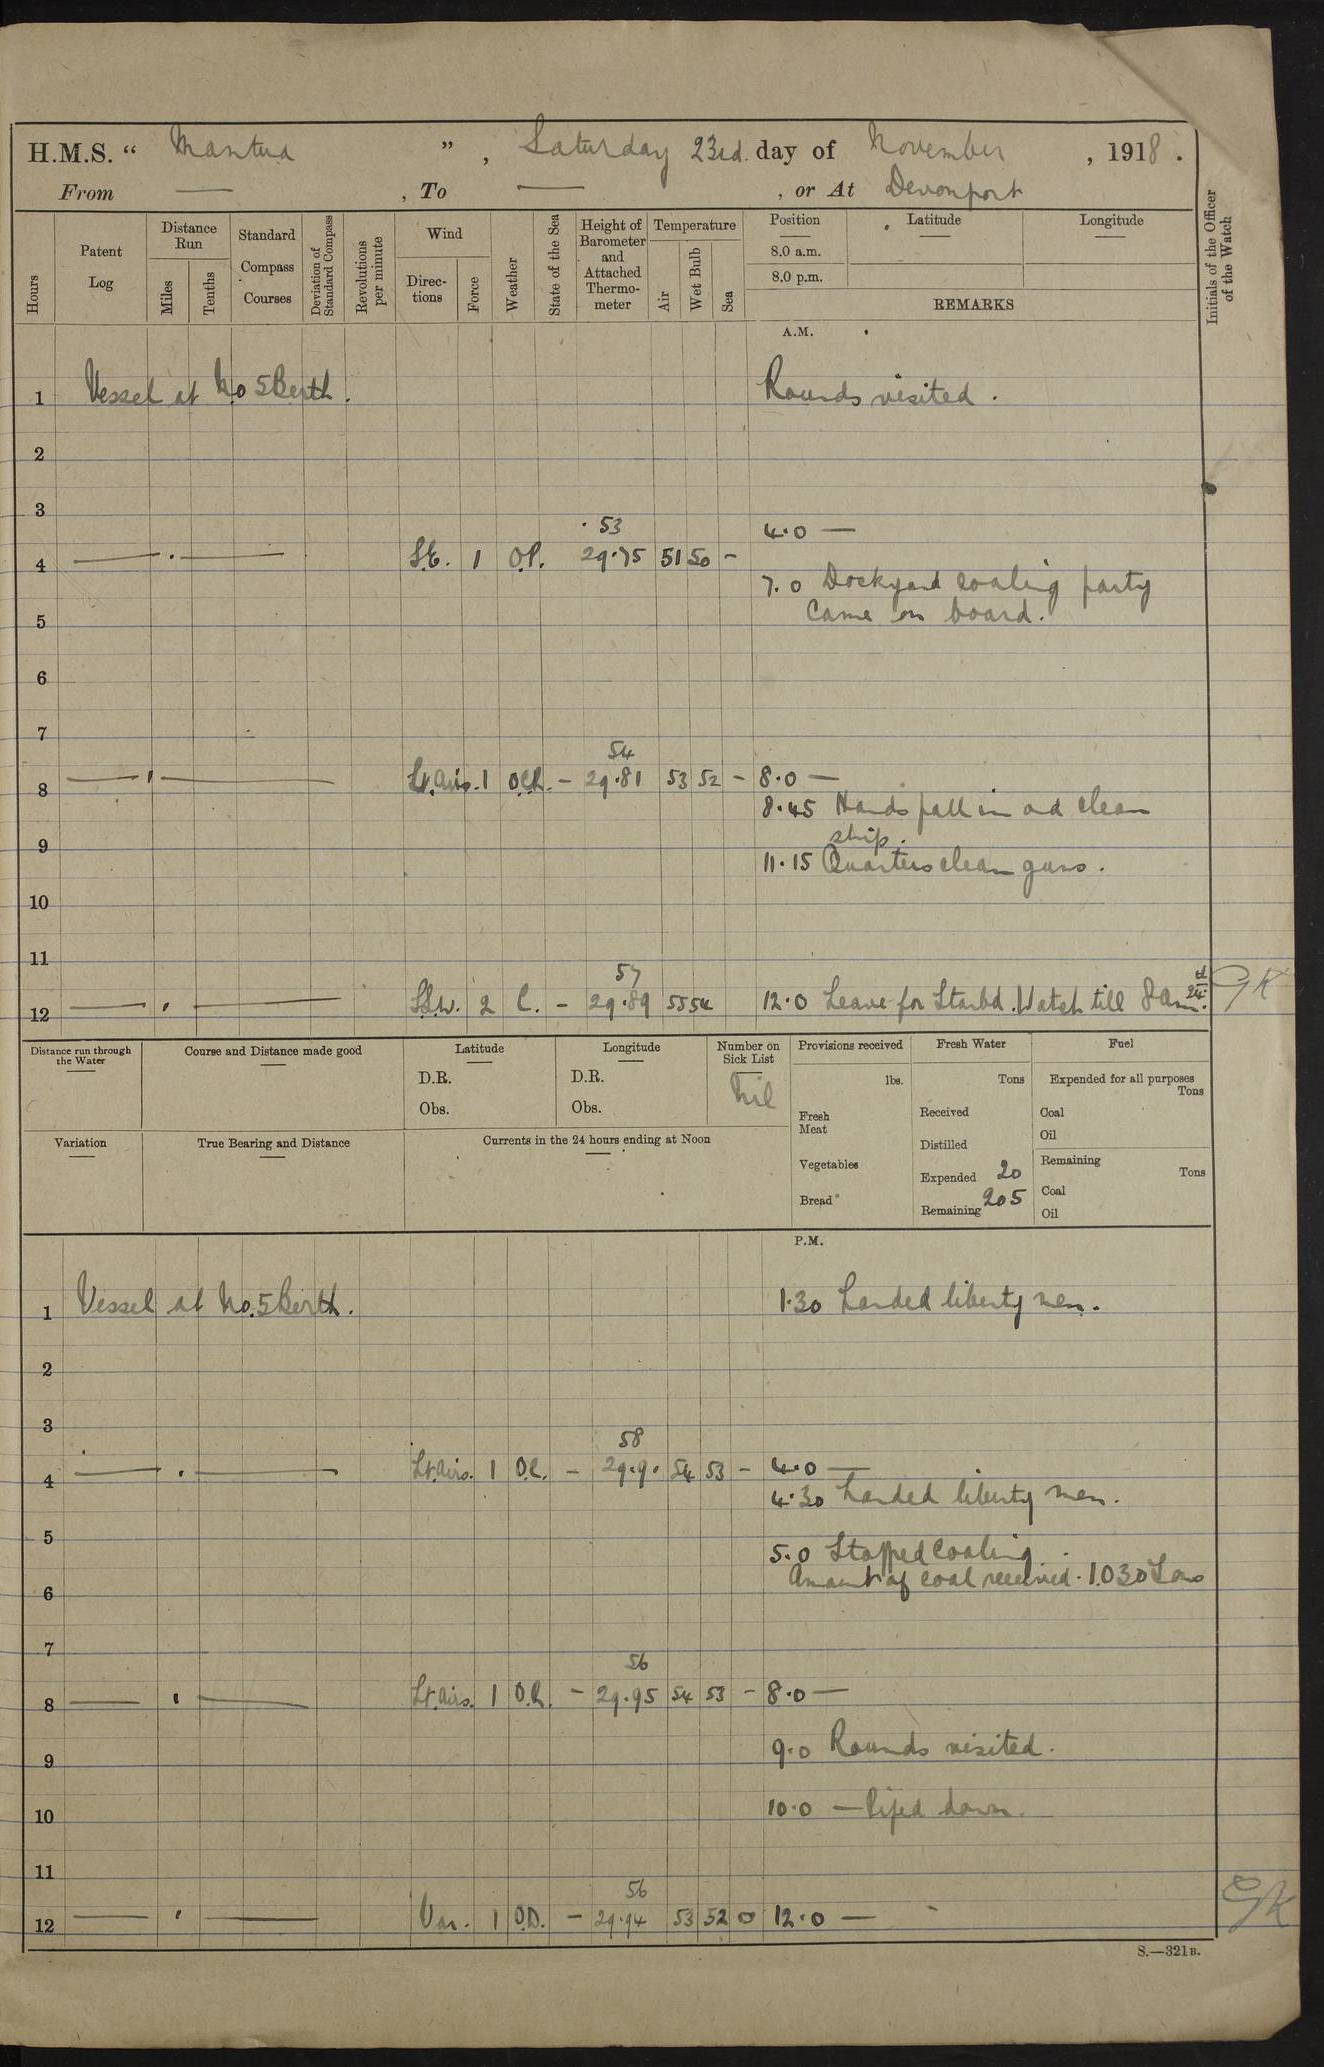 H.M.S. “ Mantua ” , Saturday 23rd. day of November , 1918 .
From — , To — , or At Devonport
Hours
Patent Log
Distance Run
Miles
Tenths
Standard Compass Courses
Deviation of Standard Compass
Revolutions per minute
Wind
Directions
Force
Weather
State of the Sea
Height of Barometer and Attached Thermometer
Temperature
Air
Wet Bulb
Sea
Position
Latitude
Longitude
8.0 a.m.
8.0 p.m.
REMARKS
Initials of the Officer of the Watch
A.M.
1 Vessel at No 5 Berth. Rounds visited.
2
3
53 4.0 —
4 S.E. 1 O.P. 29.75 51 50 -
7.0 Dockyard coaling party
5 Came on board.
6
7
54
8 Lt. Airs. 1 O.C.R. - 29.81 53 52 - 8.0 —
8.45 Hands fall in and clean
9 ship.
11.15 Quarters clean guns.
10
11
57
12 S.S.W. 2 C. - 29.89 55 54 12.0 Leave for Starbd. Watch till 8 am. 24th GK
Distance run through the Water
Course and Distance made good
Latitude
D.R.
Obs.
Longitude
D.R.
Obs.
Number on Sick List
Nil
Variation
True Bearing and Distance
Currents in the 24 hours ending at Noon
Provisions received
lbs.
Fresh Meat
Vegetables
Bread
Fresh Water
Tons
Received
Distilled
Expended 20
Remaining 205
Fuel
Expended for all purposes
Tons
Coal
Oil
Remaining
Tons
Coal
Oil
P.M.
1 Vessel at No. 5 Berth. 1.30 Landed liberty men.
2
3
58
4 Lt. Airs. 1 O.C. - 29.90 54 53 - 4.0 —
4.30 Landed liberty men.
5
5.0 Stopped Coaling.
Amount of coal received. 1030 Tons
6
7
56
8 Lt. Airs. 1 O.R. - 29.95 54 53 - 8.0 —
9.0 Rounds visited.
9
10 10.0 — Piped down.
11
56
12 Var. 1 O.D. - 29.94 53 52 0 12.0 — GK
S.—321B.